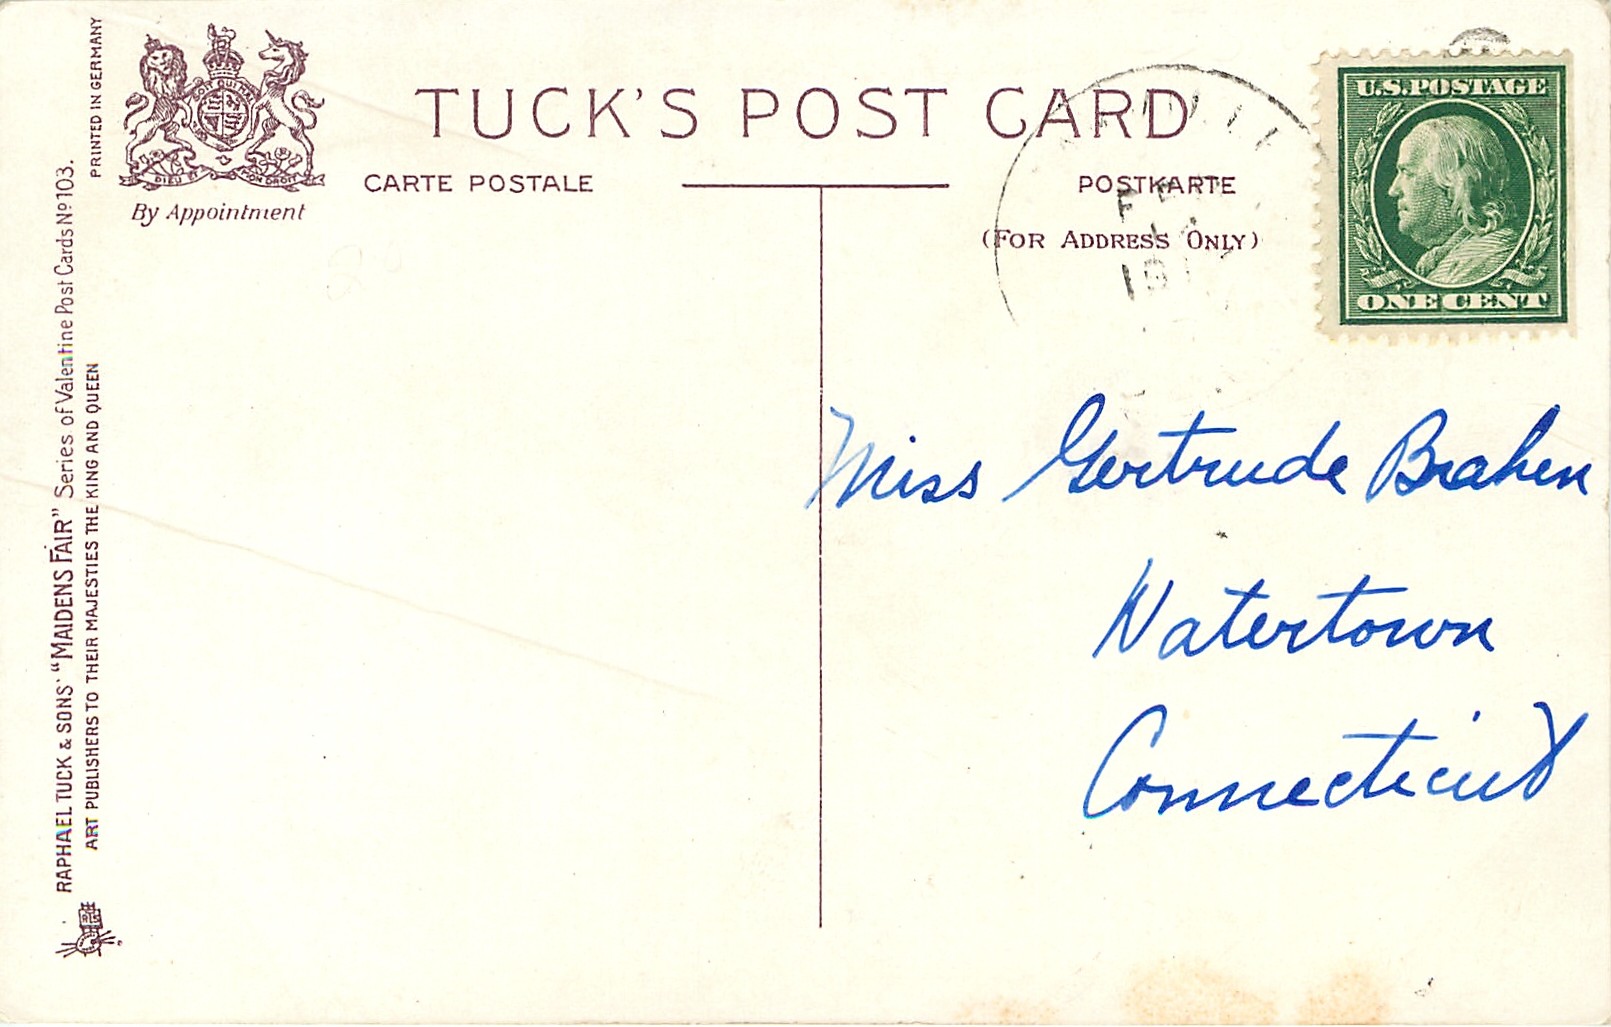 PRINTED IN GERMANY
RAPHAEL TUCK & SONS' "MAIDENS FAIR" Series of Valentine Post Cards Nº 103.
ART PUBLISHERS TO THEIR MAJESTIES THE KING AND QUEEN
DIEU ET MON DROIT
By Appointment
TUCK'S POST CARD
CARTE POSTALE
POSTKARTE
(FOR ADDRESS ONLY)
U.S. POSTAGE
ONE CENT
Miss Gertrude Brahen
Watertown
Connecticut